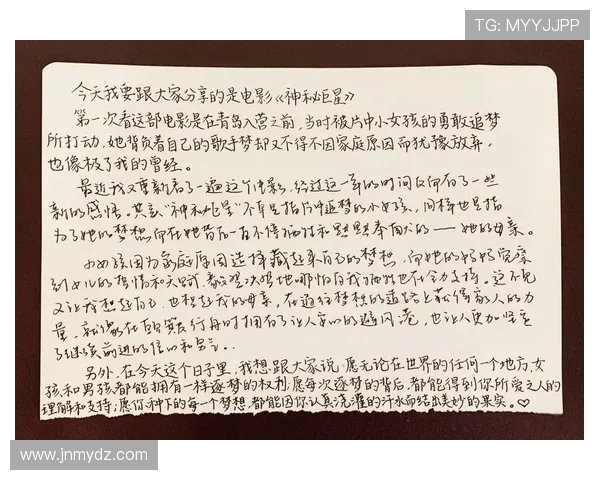 TG: MYYJJPP
今天我要跟大家分享的是电影《神秘巨星》
第一次看这部电影是在青岛入营之前,当时被片中小女孩的勇敢追梦
所打动,她背负着自己的歌手梦却又不得不因家庭原因而犹豫放弃,
也像极了我的曾经。
最近我又重新看了一遍这个电影,经过这一年的时间又何有了一些
新的感悟。其实"神秘巨星"不单是指片中追梦的小女孩,同样也是指
为了她的梦想而在她背后一直不惜牺牲和默默奉献的——她的母亲。
小女孩因为家庭原因选择藏起来自己的梦想,而她的妈妈察觉
到女儿的热情和天赋,义地哪怕自我牺牲也在全力支持。这不免
又让我想起自己,也想起我的母亲,在通往梦想的道路上获得家人的力
量,就像在行舟时拥有了让人安心的避风港,也让人更加坚定
了继续前进的信心和勇气。
另外,在今天这个日子里,我想跟大家说:愿无论在世界的任何一个地方,女
孩和男孩都能拥有一样逐梦的权利;愿每次逐梦的背后,都能得到你所爱之人的
理解和支持;愿你种下的每一个梦想,都能因你认真浇灌的汗水而结出美妙的果实。♡
www.jnmydz.com